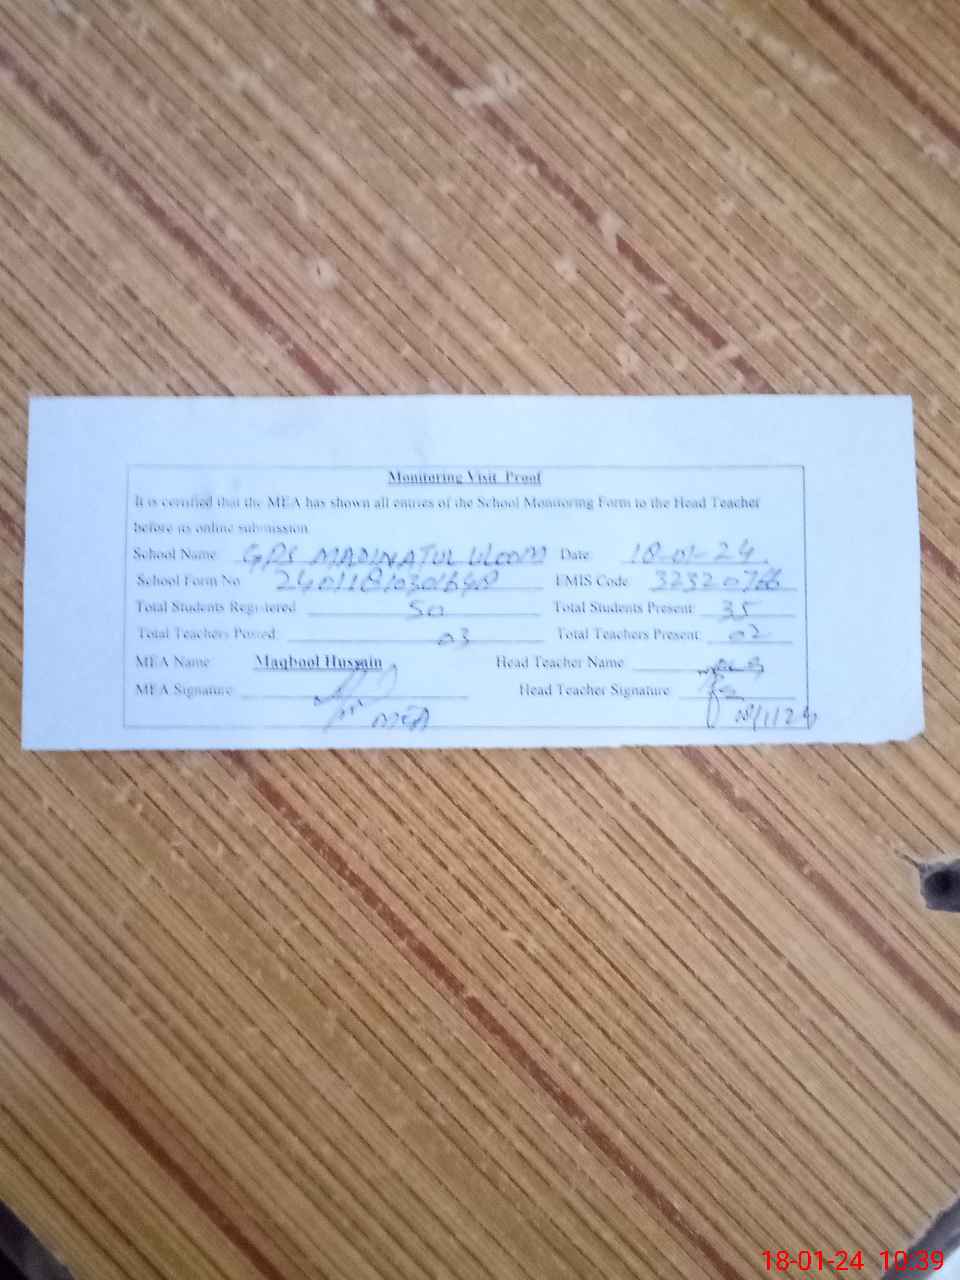 Monitoring Visit Proof
It is certified that the MEA has shown all entries of the School Monitoring Form to the Head Teacher
before its online submission.
School Name GPS MADINATUL ULOOM Date 18-01-24
School Form No EMIS Code 32320766
Total Students Registered 50 Total Students Present: 35
Total Teachers Posted: 03 Total Teachers Present: 02
MEA Name: Maqbool Hussain Head Teacher Name:
MEA Signature: Head Teacher Signature
MEA
18-01-24 10:39